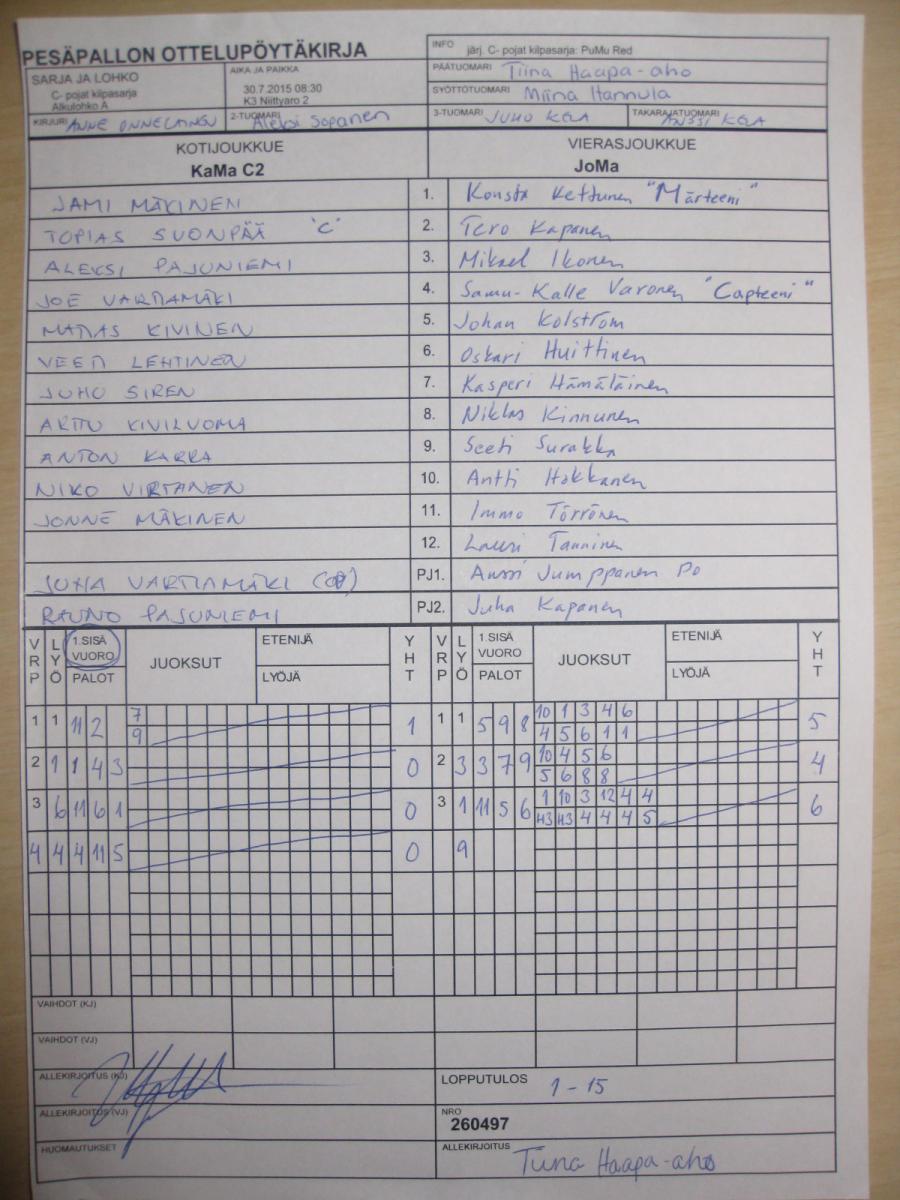 PESÄPALLON OTTELUPÖYTÄKIRJA
INFO järj. C- pojat kilpasarja: PuMu Red
SARJA JA LOHKO
C- pojat kilpasarja
Alkulohko A
AIKA JA PAIKKA
30.7.2015 08:30
K3 Niittyaro 2
PÄÄTUOMARI Tiina Haapa-aho
SYÖTTÖTUOMARI Miina Hannula
KIRJURI ANNE ONNELAINEN 2-TUOMARI Aleksi Sopanen 3-TUOMARI JUHO KELA TAKARAJATUOMARI ANSSI KELA
KOTIJOUKKUE VIERASJOUKKUE
KaMa C2 JoMa
JAMI MÄKINEN 1. Konsta Kettunen "Märteeni"
TOPIAS SUONPÄÄ "C" 2. Tero Kapanen
ALEKSI PAJUNIEMI 3. Mikael Ikonen
JOE VARTIAMÄKI 4. Samu-Kalle Varonen "Capteeni"
MATIAS KIVINEN 5. Johan Kolström
VEETI LEHTINEN 6. Oskari Huittinen
JUHO SIREN 7. Kasperi Hämäläinen
ARTTU KIVILUOMA 8. Niklas Kinnunen
ANTON KARRA 9. Seeti Surakka
NIKO VIRTANEN 10. Antti Hakkanen
JONNE MÄKINEN 11. Immo Törrönen
12. Lauri Tanninen
JUHA VARTIAMÄKI PJ1. Anssi Jumppanen PJ
RAUNO PAJUNIEMI PJ2. Juha Kapanen
VRP LYÖ 1.SISÄ VUORO PALOT JUOKSUT ETENIJÄ LYÖJÄ YHT VRP LYÖ 1.SISÄ VUORO PALOT JUOKSUT ETENIJÄ LYÖJÄ YHT
1 1 11 2 7 1 1 1 5 9 8 10 1 3 4 6 5
9 4 5 6 1 1
2 1 1 4 3 0 2 3 3 7 9 10 4 5 6 4
5 6 8 8
3 6 11 6 1 0 3 1 11 5 6 1 10 3 12 4 4 6
H3 H3 4 4 4 5
4 4 4 11 5 0 9
VAIHDOT (KJ)
VAIHDOT (VJ)
ALLEKIRJOITUS (KJ) LOPPUTULOS 1 - 15
ALLEKIRJOITUS (VJ) NRO
260497
HUOMAUTUKSET ALLEKIRJOITUS Tiina Haapa-aho